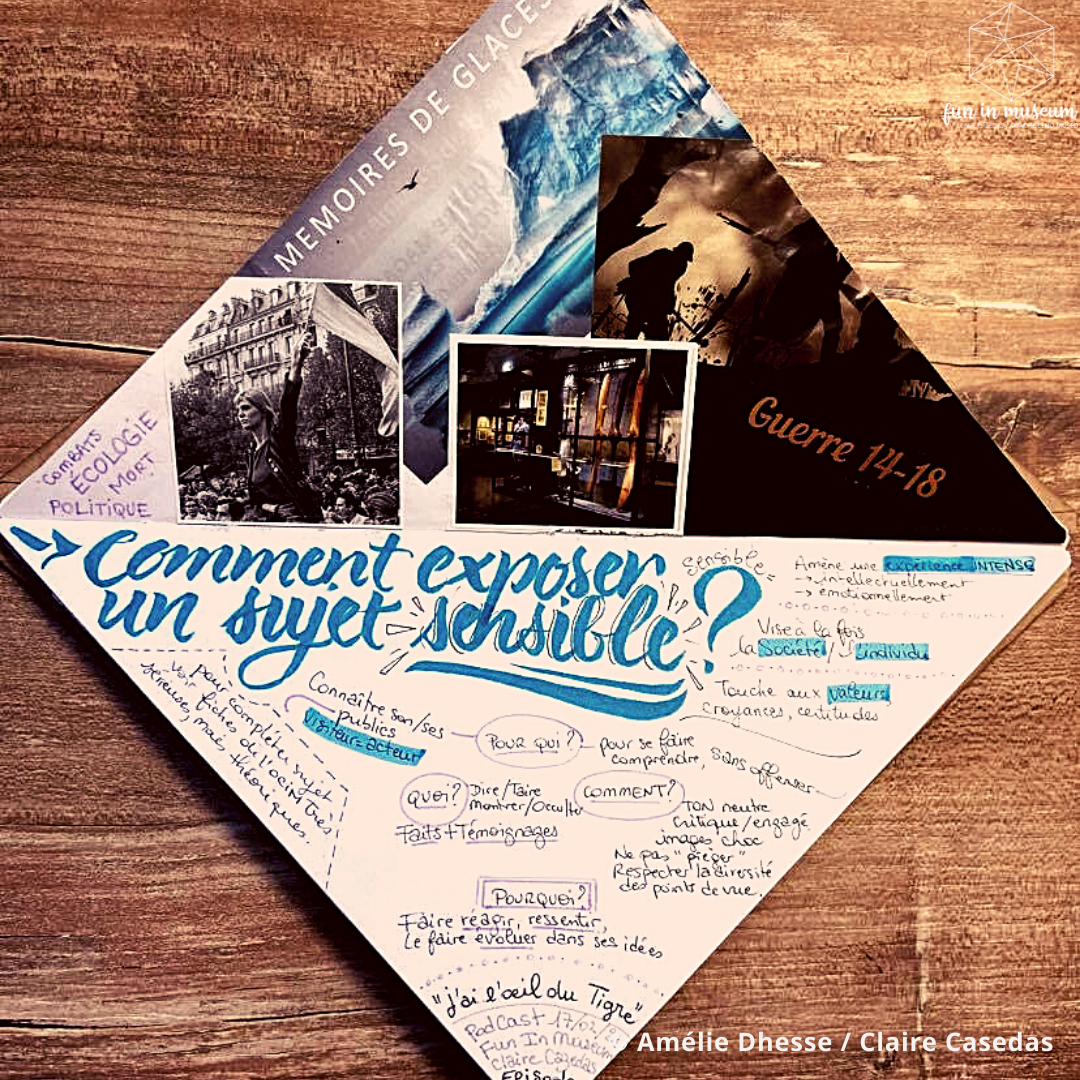 fun in museum
MEMOIRES DE GLACES
Guerre 14-18
COMBATS
ÉCOLOGIE
MORT
POLITIQUE
→ Comment exposer
un sujet sensible ?
sensible =
Amène une expérience INTENSE
→ intellectuellement
→ émotionnellement
Vise à la fois
la Société / l'individu
Touche aux valeurs,
croyances, certitudes
pour compléter sujet
voir fiches de l'OCIM Très
sérieuses, mais
théoriques.
Connaître son/ses
publics
Visiteur = acteur
POUR QUI ?
pour se faire
comprendre, sans offenser
QUOI ?
Dire/Taire
Montrer/Occulter
Faits + Témoignages
COMMENT ?
TON neutre
Critique/engagé
images choc
Ne pas "piéger"
Respecter la diversité
des points de vue.
POURQUOI ?
Faire réagir, ressentir,
Le faire évoluer dans ses idées
"j'ai l'œil du Tigre"
PodCast 17/02
Fun In Museum
Claire Casedas
Episode
© Amélie Dhesse / Claire Casedas